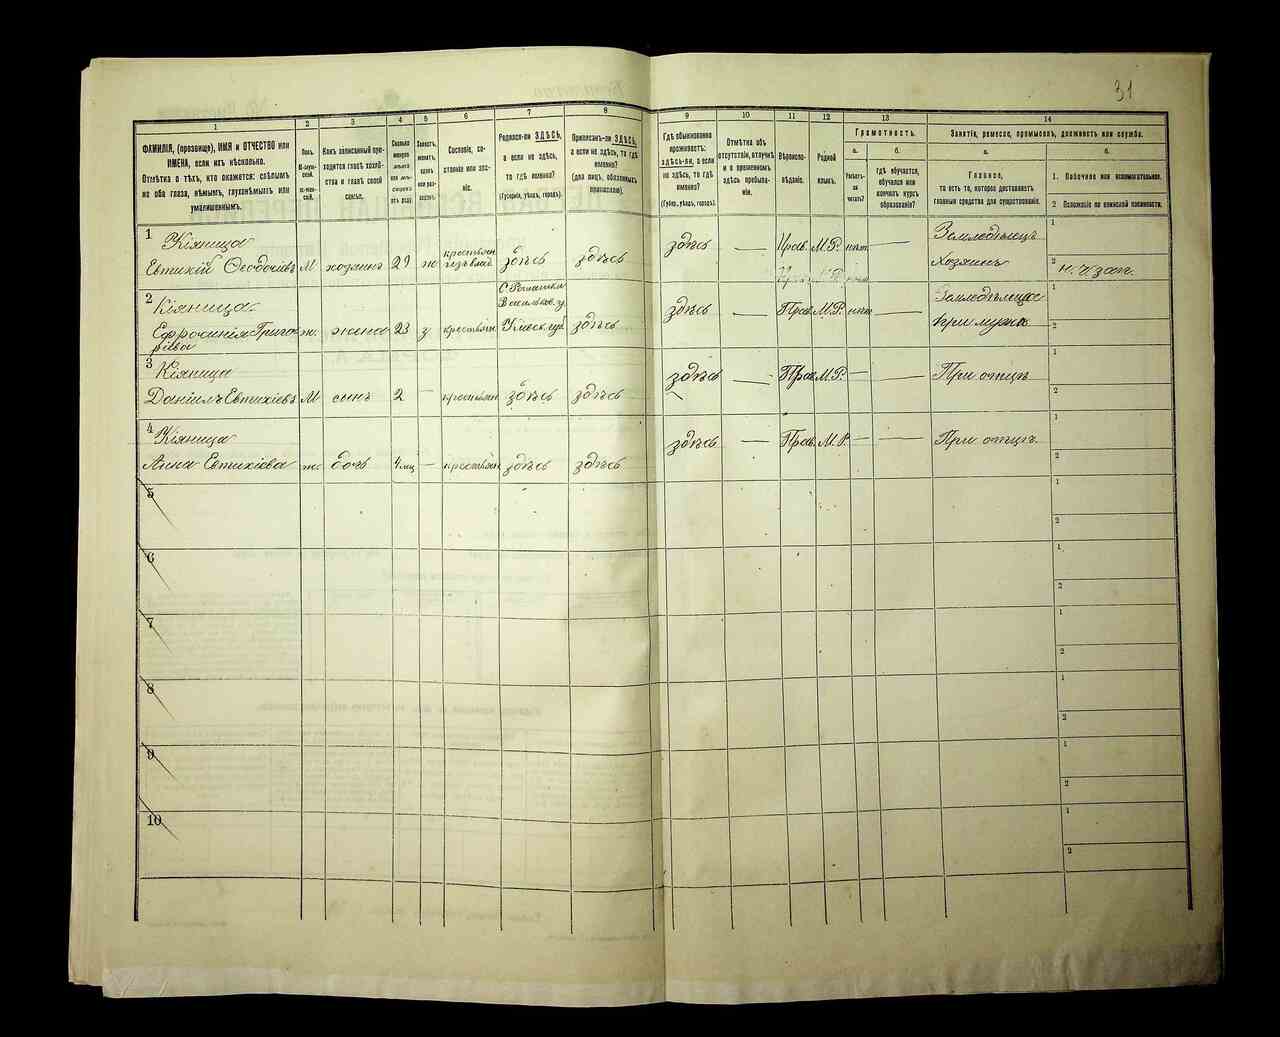 31
1 2 3 4 5 6 7 8 9 10 11 12 13 14
ФАМИЛІЯ, (прозвище), ИМЯ и ОТЧЕСТВО или
ИМЕНА, если ихъ нѣсколько.
Отмѣтка о тѣхъ, кто окажется: слѣпымъ
на оба глаза, нѣмымъ, глухонѣмымъ или
умалишеннымъ.
Полъ.
М-мужской.
Ж-женскій.
Какъ записанный приходится главѣ хозяйства и главѣ своей семьи.
Сословіе, состояніе или званіе.
Родился-ли ЗДѢСЬ,
а если не здѣсь,
то гдѣ именно?
(Губернія, уѣздъ, городъ).
Приписанъ-ли ЗДѢСЬ,
а если не здѣсь, то гдѣ
именно?
(для лицъ, обязанныхъ
припискою).
Гдѣ обыкновенно
проживаетъ:
здѣсь-ли, а если
не здѣсь, то гдѣ
именно?
(Губер., уѣздъ, городъ).
Отмѣтка объ
отсутствіи, отлучкѣ
и о временномъ
здѣсь пребываніи.
Вѣроисповѣданіе.
Родной
языкъ.
Грамотность.
а.
Умѣетъ-ли
читать?
б.
гдѣ обучается,
обучался или
кончилъ курсъ
образованія?
Занятіе, ремесло, промыселъ, должность или служба.
а.
Главное,
то есть то, которое доставляетъ
главныя средства для существованія.
б.
1. Побочное или вспомогательное.
2 Положеніе по воинской повинности.
1 Кіяница
Евтихій Ѳеодосіевъ М хозяинъ 29 ж крестьян. изъ влад. здѣсь здѣсь здѣсь — Прав. М.Р. нѣт — Земледѣлецъ
Хозяинъ
1
2 Н. Ч. зап.
2 Кіяница
Ефросинія Григорьева ж. жена 23 з крестьян С Ромашки
Васильков. у.
Кіевск. губ здѣсь здѣсь — Прав. М.Р. нѣт — Земледѣлица
при мужѣ
1
2
3 Кіяница
Даніилъ Евтихіевъ М сынъ 2 — крестьян здѣсь здѣсь здѣсь — Прав. М.Р. — — При отцѣ
1
2
4 Кіяница
Анна Евтихіева ж. дочь 4 мц — крестьян здѣсь здѣсь здѣсь — Прав. М.Р. — — При отцѣ
1
2
5
1
2
6
1
2
7
1
2
8
1
2
9
1
2
10
1
2